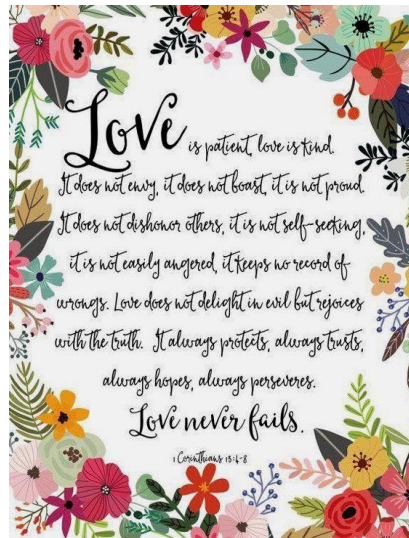 Love is patient, love is kind.
It does not envy, it does not boast, it is not proud.
It does not dishonor others, it is not self-seeking,
it is not easily angered, it keeps no record of
wrongs. Love does not delight in evil but rejoices
with the truth. It always protects, always trusts,
always hopes, always perseveres.
Love never fails.
1 Corinthians 13:4-8